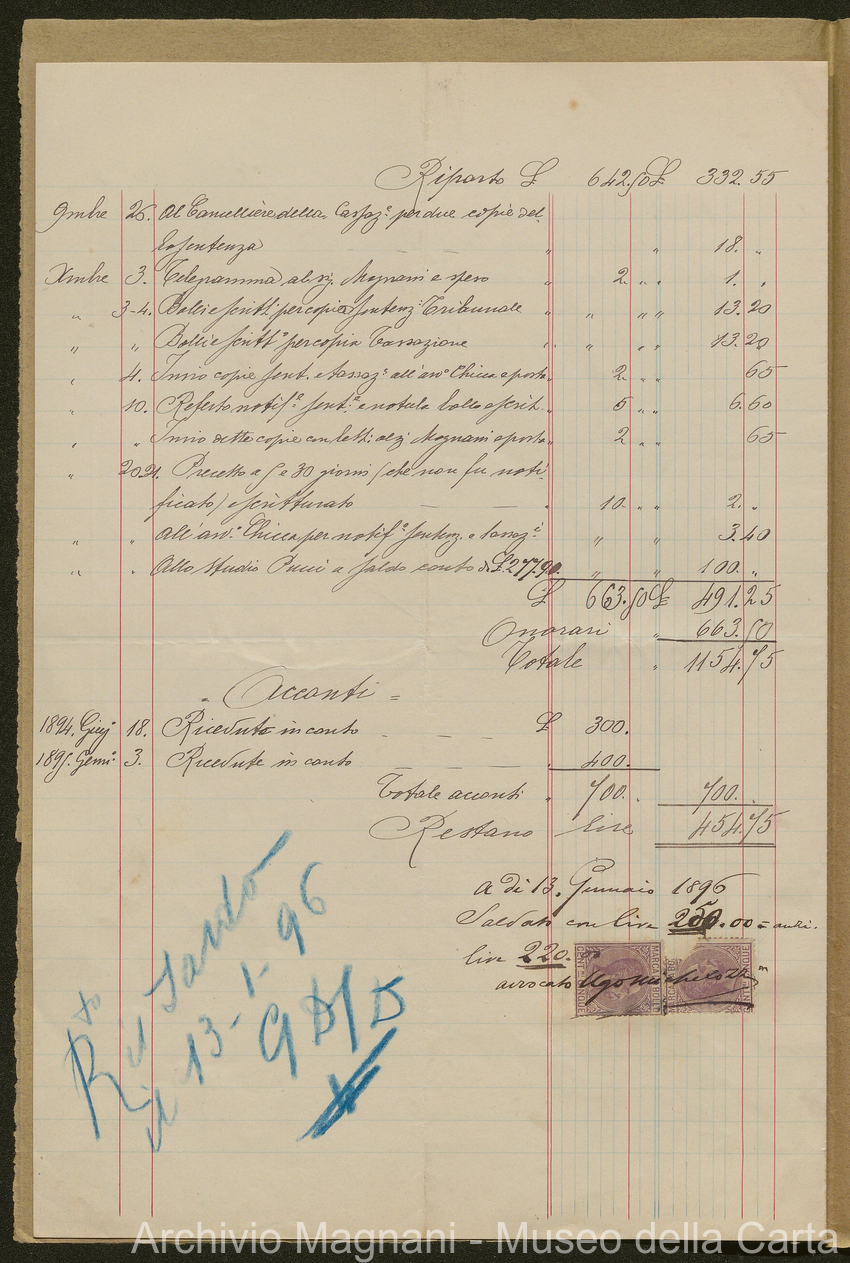 Riporto £ 642.50 £ 332.55
9mbre 26. Al Cancelliere della Cassaz.e per due copie del-
la sentenza „ „ 18. „
Xmbre 3. Telegramma al sig. Magnani e speso „ 2. „ „ 1. „
„ 3-4. Bolli e scritt. per copia sentenz. Tribunale „ „ „ „ 13.20
„ „ Bolli e scritt.a per copia Cassazione „ „ „ „ 13.20
„ 4. Invio copie sent. e tassaz.e all'avv.o Chicca e posta „ 2. „ „ 65
„ 10. Referto notif.a sent.a e notula bollo e scrit. „ 5 „ „ 6.60
„ „ Invio dette copie con lett. al sig. Magnani e posta „ 2 „ „ 65
„ 20.21. Precetto a 5 e 30 giorni (che non fu noti-
ficato) e scritturato „ 10. „ „ 2. „
„ „ All'avv.o Chicca per notif.a sentenz. e tassaz.e „ „ 3.40
„ „ Allo studio Pucci a saldo conto di £ 277.90. „ „ 100. „
£ 663.50 £ 491.25
Onorari „ 663.50
Totale „ 1154.75
„ Acconti =
1894. Giug 18. Ricevute in conto £ 300.
1895. Genn.o 3. Ricevute in conto „ 400.
Totale acconti „ 700. . 700. .
Restano lire 454.75
a di 13. Gennaio 1896
Saldato con lire 250.00 = anzi.
lire 220.00
avvocato Ugo Michelozzi
MARCA DA BOLLO
CENT
il 13-1-96
Archivio Magnani - Museo della Carta